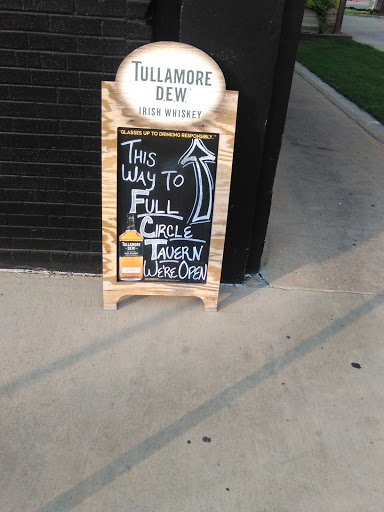 TULLAMORE
D.E.W.
IRISH WHISKEY
"GLASSES UP TO DRINKING RESPONSIBLY."
THIS
WAY TO
FULL
CIRCLE
TAVERN
WE'RE OPEN
TULLAMORE
D.E.W.